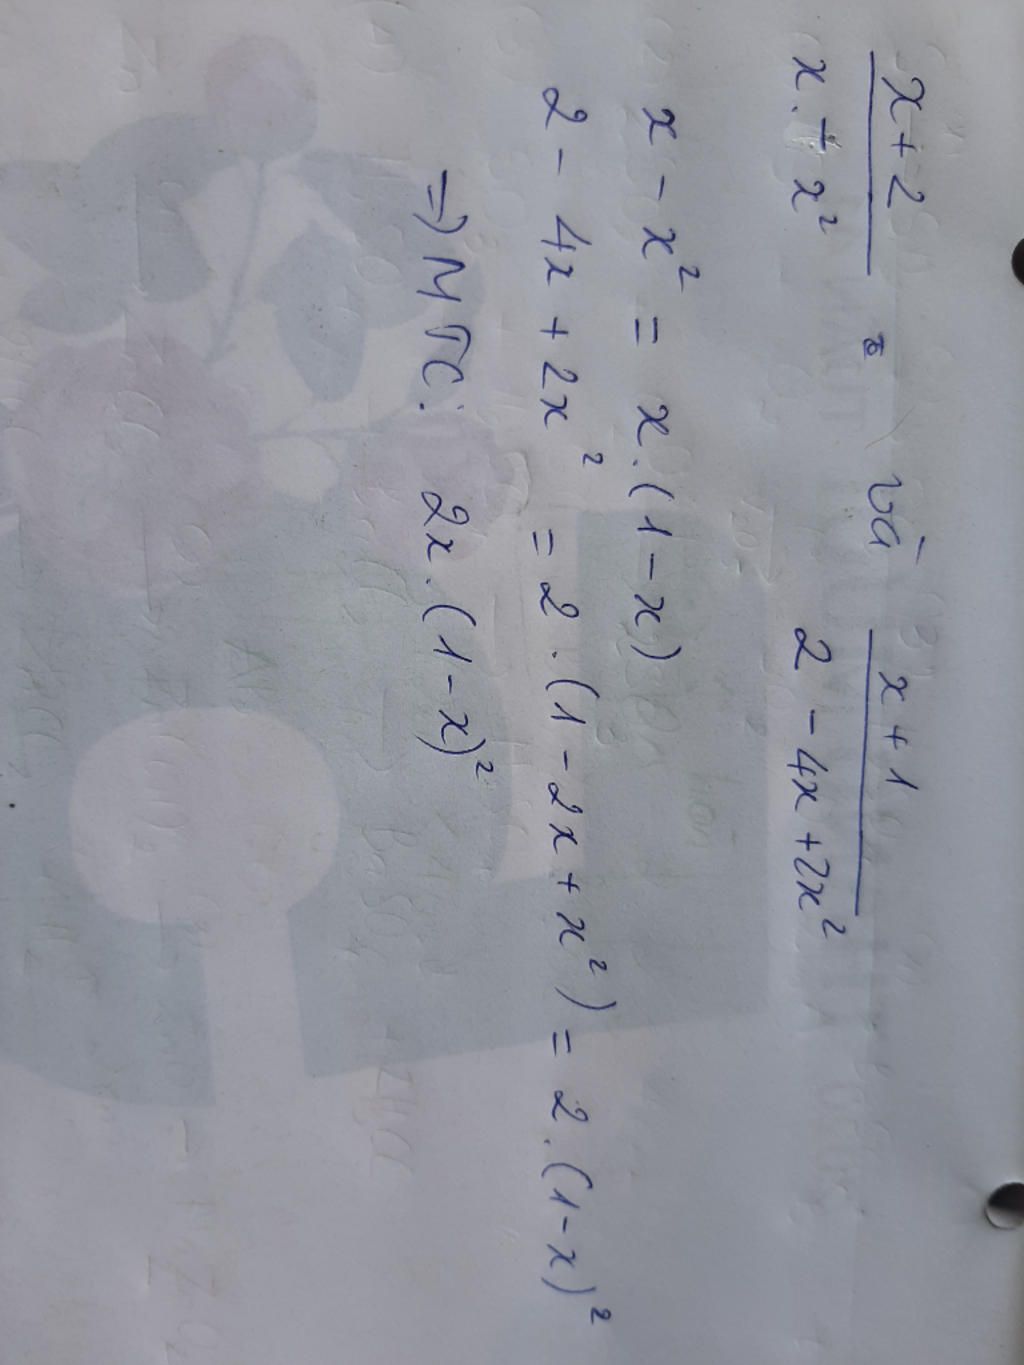 x + 2 / x. + x² và x + 1 / 2 - 4x + 2x²
x - x² = x.(1 - x)
2 - 4x + 2x² = 2.(1 - 2x + x²) = 2.(1 - x)²
⇒ MTC: 2x.(1 - x)²